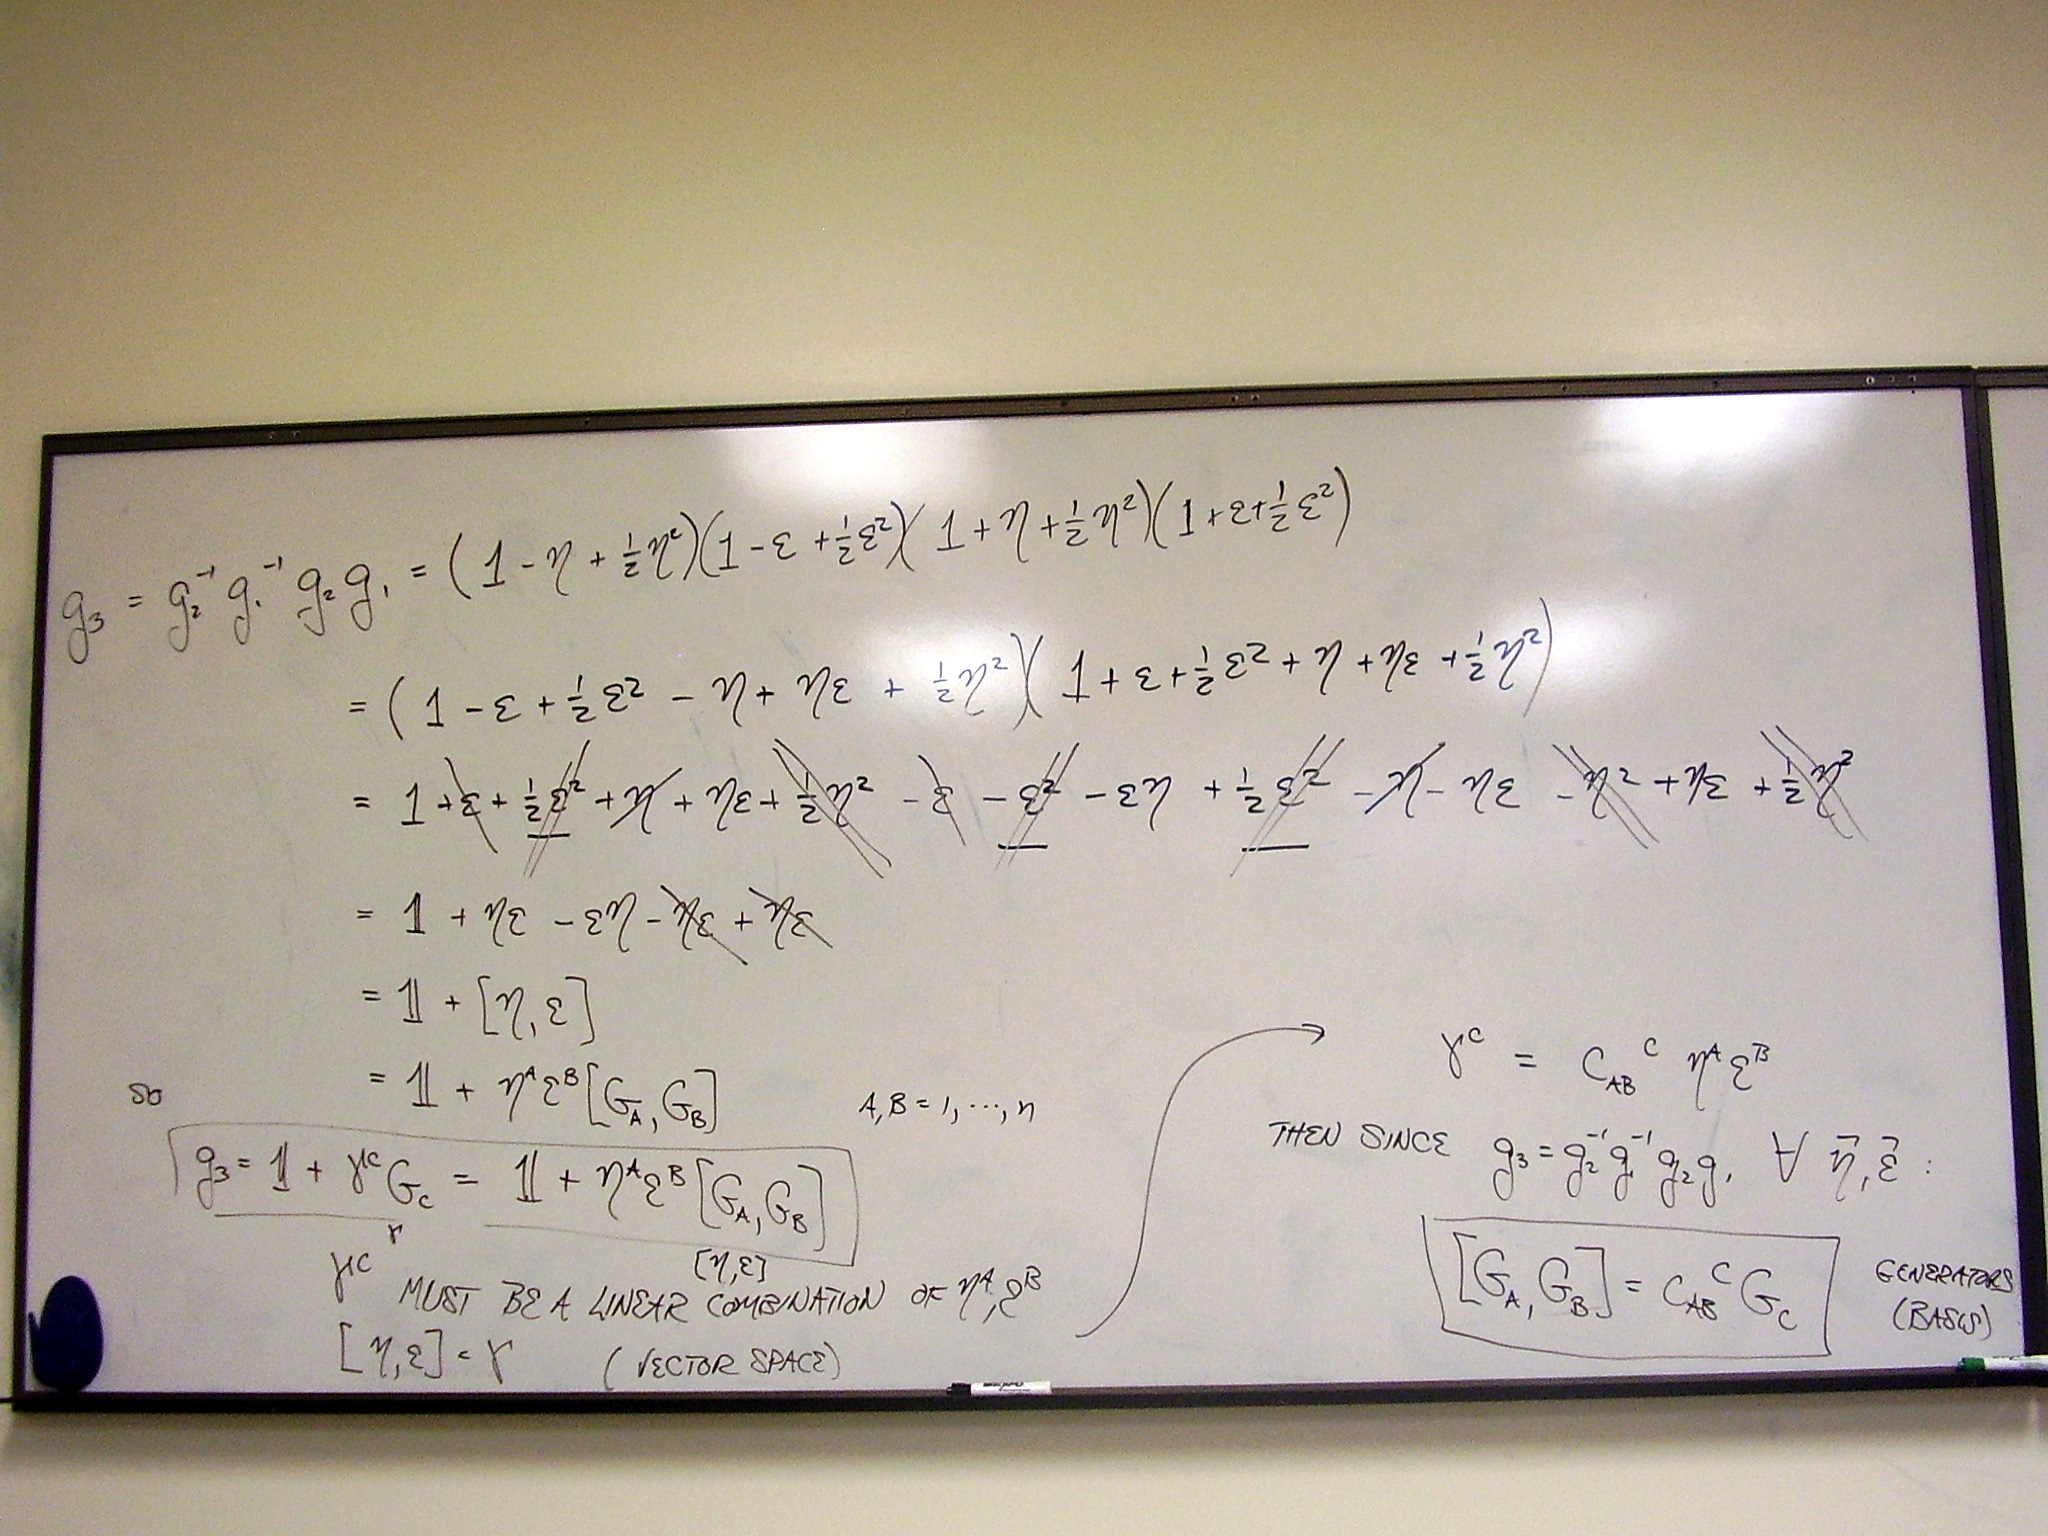 g₃ = g₂⁻¹ g₁⁻¹ g₂ g₁ = (1 - η + ½η²)(1 - ε + ½ε²)(1 + η + ½η²)(1 + ε + ½ε²)
= (1 - ε + ½ε² - η + ηε + ½η²)(1 + ε + ½ε² + η + ηε + ½η²)
= 1 + ε + ½ε² + η + ηε + ½η² - ε - ε² - εη + ½ε² - η - ηε - η² + ηε + ½η²
= 1 + ηε - εη - ηε + ηε
= 𝟙 + [η, ε]
= 𝟙 + η^A ε^B [G_A, G_B] A, B = 1, ..., n
SO
g₃ = 𝟙 + γ^C G_C = 𝟙 + η^A ε^B [G_A, G_B]
γ [η, ε]
γ^C MUST BE A LINEAR COMBINATION OF η^A, ε^B
[η, ε] = γ (VECTOR SPACE)
γ^C = C_AB^C η^A ε^B
THEN SINCE g₃ = g₂⁻¹ g₁⁻¹ g₂ g₁ ∀ η⃗, ε⃗ :
[G_A, G_B] = C_AB^C G_C GENERATORS
(BASIS)